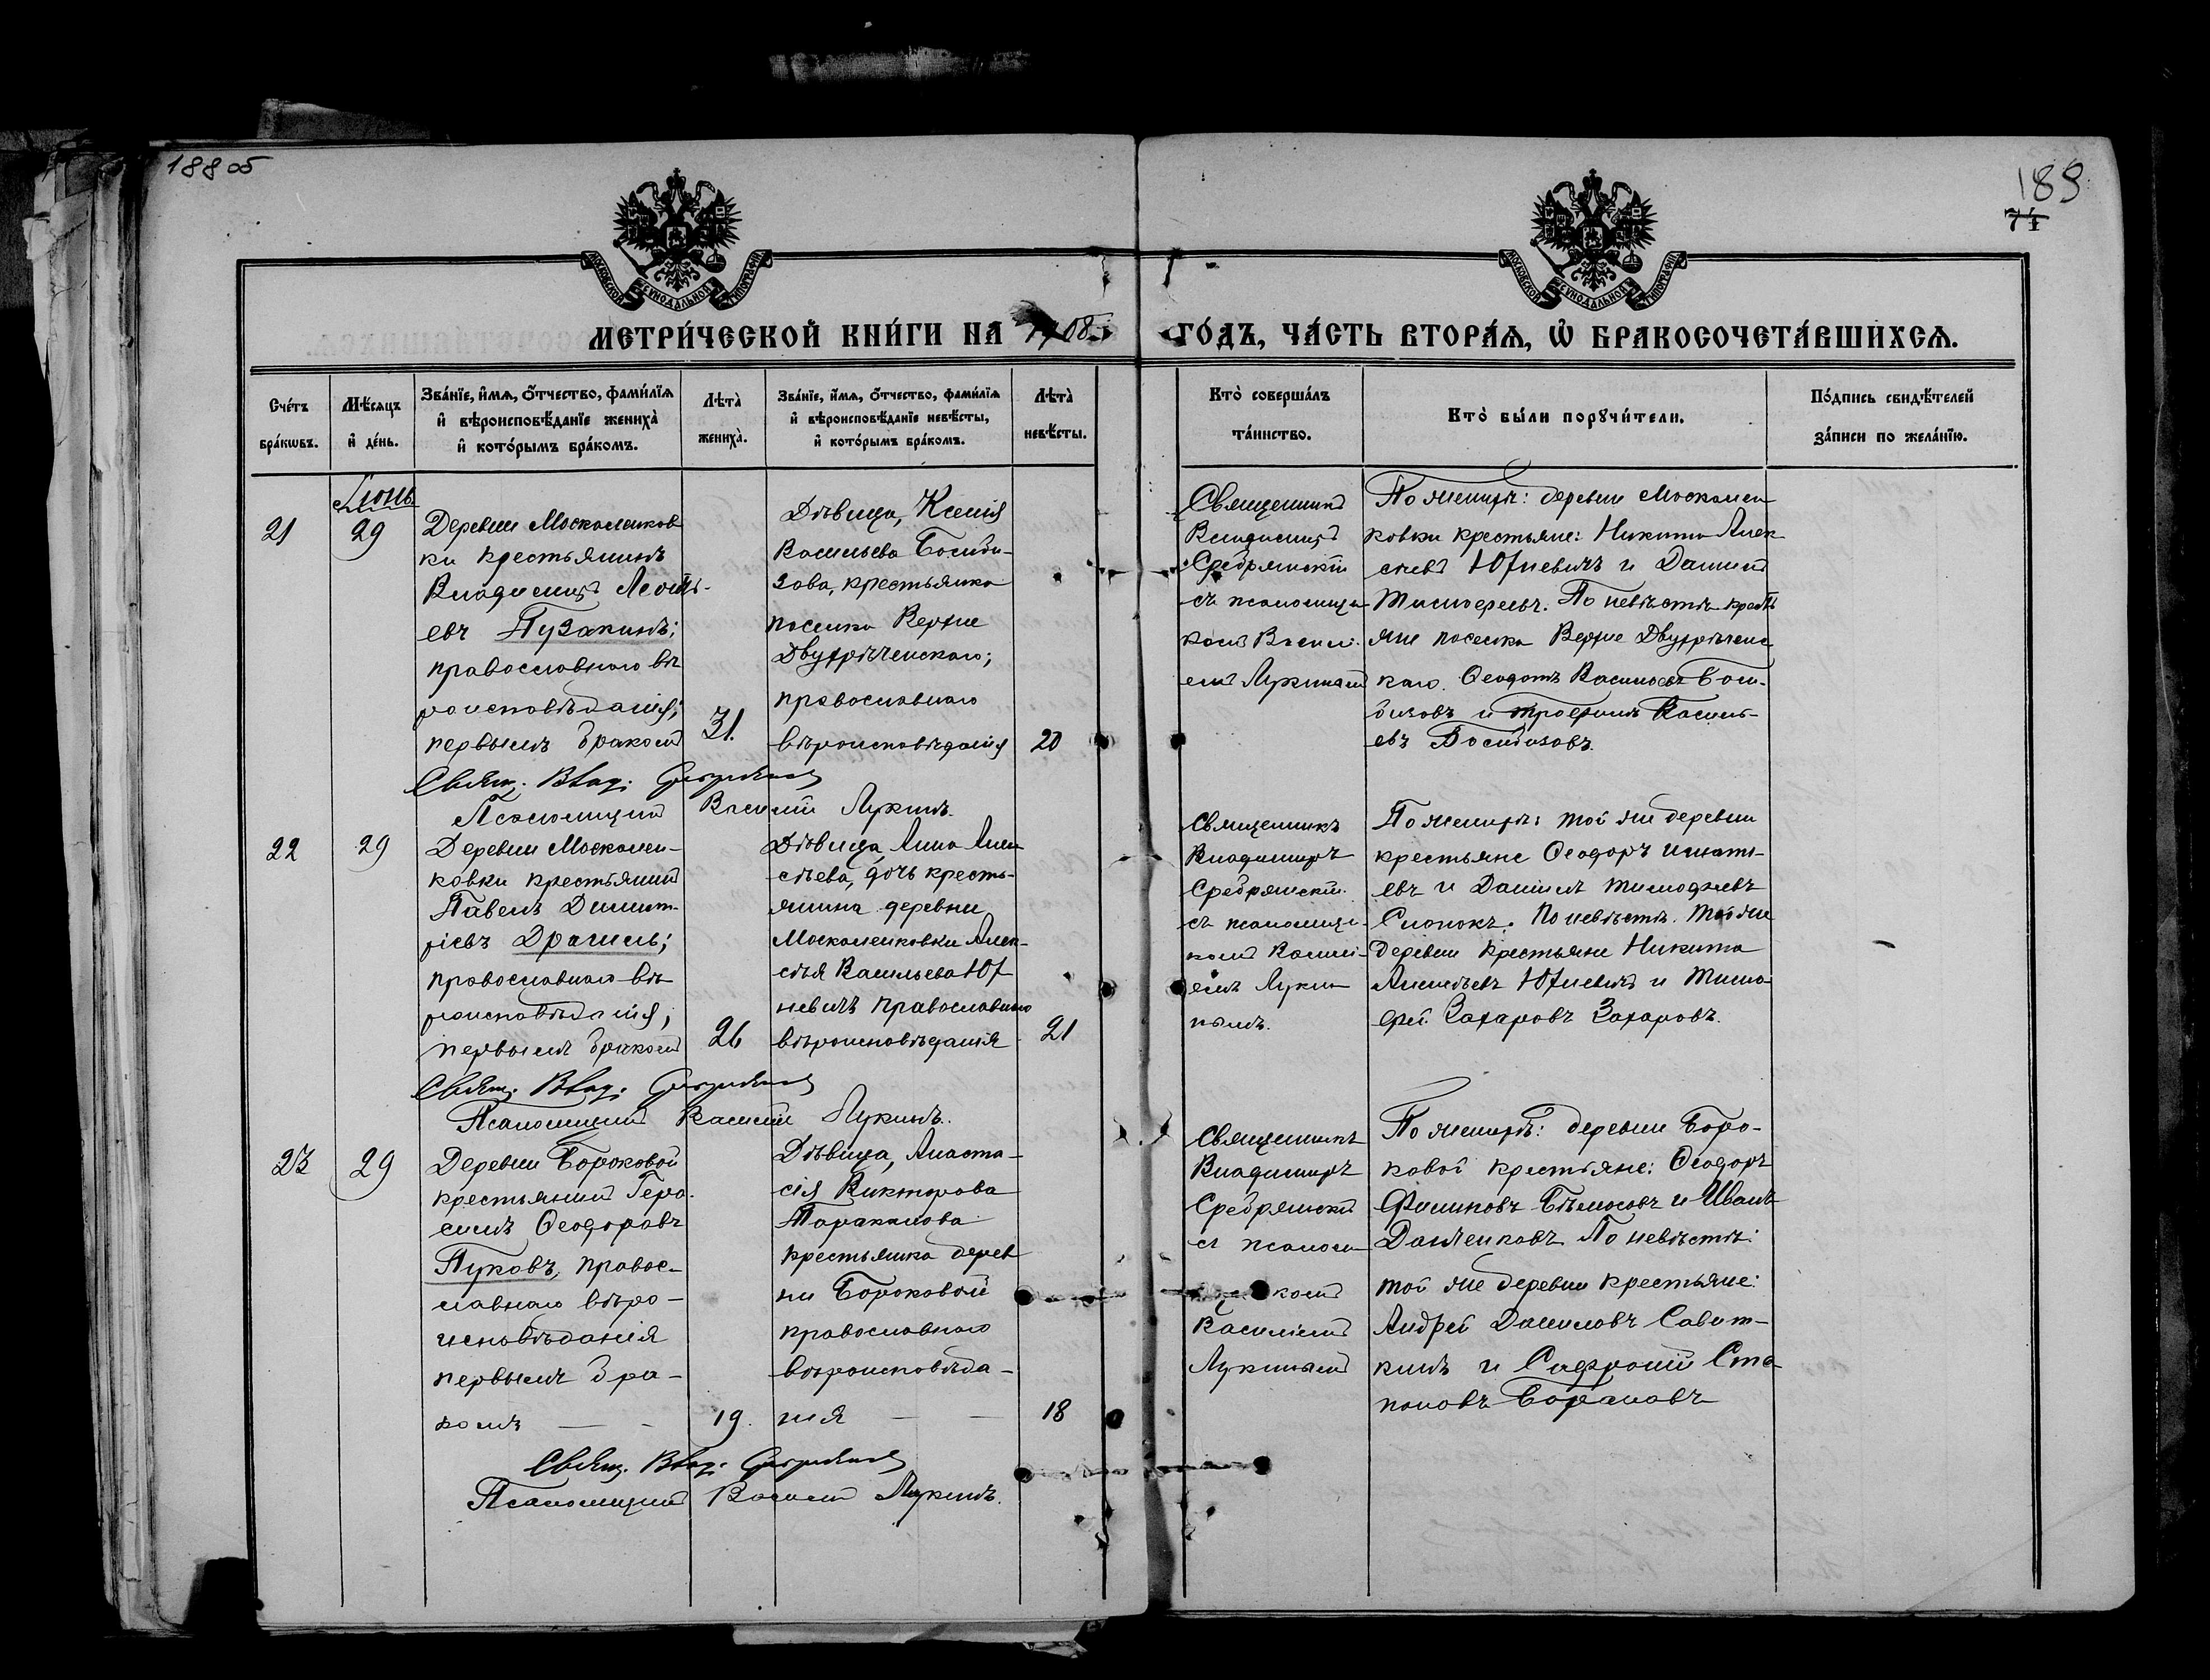 188 об
189
74
МОСКОВСКОЙ СѴНОДАЛЬНОЙ ТИПОГРАФІИ
МОСКОВСКОЙ СѴНОДАЛЬНОЙ ТИПОГРАФІИ
МЕТРИ́ЧЕСКОЙ КНИ́ГИ НА 1908
ГО́ДЪ, ЧА́СТЬ ВТОРА́Ѧ, Ѡ҆ БРАКОСОЧЕТА́ВШИХСѦ.
Сче́тъ бра́кѡвъ.
Мѣ́сѧцъ и҆ де́нь.
Зва́нїе, и҆́мѧ, ѻ҆́тчество, фами́лїѧ
и҆ вѣроисповѣ́данїе жениха̀
и҆ кото́рымъ бра́комъ.
Лѣта̀ жениха̀.
Зва́нїе, и҆́мѧ, ѻ҆́тчество, фами́лїѧ
и҆ вѣроисповѣ́данїе невѣ́сты,
и҆ кото́рымъ бра́комъ.
Лѣта̀ невѣ́сты.
Кто̀ соверша́лъ
та́инство.
Кто̀ бы́ли порꙋчи́тели.
По́дпись свидѣ́телей
за́писи по жела́нїю.
21
Іюнь
29
Деревни Москаленков
ки крестьянинъ
Владиміръ Леонть-
евъ Пузакинъ;
православнаго вѣ
роисповѣданія;
первымъ бракомъ
31.
Дѣвица, Ксенія
Васильева Босиби-
зова, крестьянка
поселка Верхне
Двухрѣченскаго;
православнаго
вѣроисповѣданія
20
Священникъ
Владиміръ
Сребрянскій
съ псаломщи-
комъ Васил
емъ Лукинымъ
По женихѣ: деревни Москален
ковки крестьяне: Никита Алек
сѣевъ Юхневичъ и Даніилъ
Тимоѳеевъ. По невѣстѣ кресть
яне поселка Верхне Двухрѣченс
каго. Ѳеодотъ Васильевъ Боси-
бизовъ и Трофимъ Василь-
евъ Босибизовъ.
Свящ. Влад. Сребрянскій
Псаломщикъ Василій Лукинъ.
22
29
Деревни Москален-
ковки крестьянинъ
Павелъ Димит-
ріевъ Драгиль;
православнаго вѣ-
роисповѣданія;
первымъ бракомъ
26
Дѣвица, Анна Алек
сѣева, дочь кресть-
янина деревни
Москаленковки Алек-
сѣя Васильева Юх
невичъ православнаго
вѣроисповѣданія
21
Священникъ
Владиміръ
Сребрянскій
съ псаломщи-
комъ Васил-
емъ Луки
нымъ.
По женихѣ: той же деревни
крестьяне Ѳеодоръ Игнать-
евъ и Даніилъ Тимофеевъ
Слонокъ. По невѣстѣ. той же
деревни крестьяне Никита
Алексѣевъ Юхневичъ и Тимо-
фей Захаровъ Захаровъ.
Свящ. Влад. Сребрянскій
Псаломщикъ Василій Лукинъ.
23
29
Деревни Бороковой
крестьянинъ Гера-
симъ Ѳеодоровъ
Пуковъ, правос-
лавнаго вѣро-
исповѣданія
первымъ бра-
комъ — -
19.
Дѣвица, Анаста-
сія Викторова
Тараканова
крестьянка дерев
ни Бороковой
православнаго
вѣроисповѣда-
нія — —
18
Священникъ
Владиміръ
Сребрянскій
съ псалом
комъ
Василіемъ
Лукинымъ
По женихѣ: деревни Боро-
ковой крестьяне: Ѳеодоръ
Филиповъ Бѣлюсовъ и Иванъ
Данченковъ По невѣстѣ:
той же деревни крестьяне:
Андрей Даниловъ Савит-
кинъ и Сафроній Сте-
пановъ Борановъ
Свящ. Влад. Сребрянскій
Псаломщикъ Василій Лукинъ.